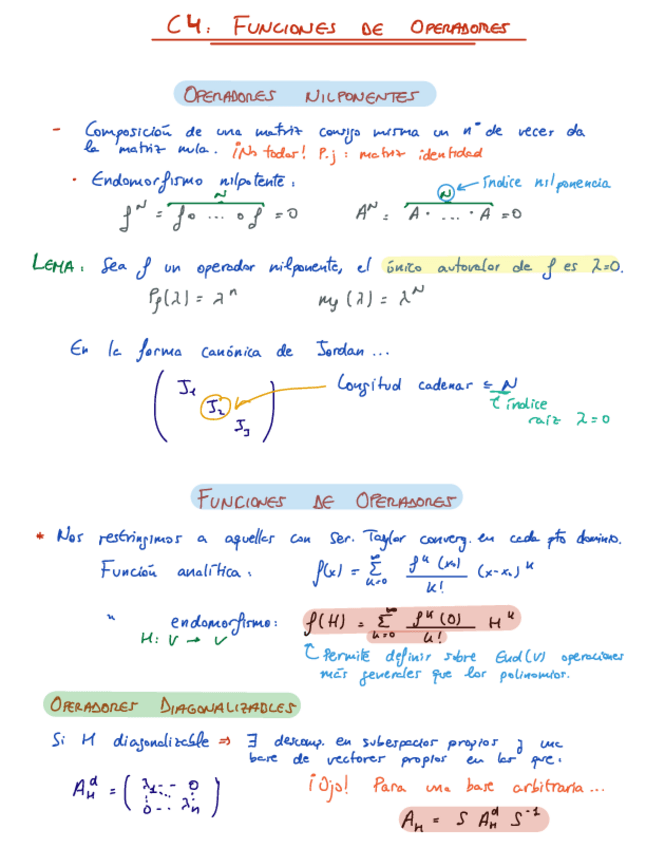 C4: FUNCIONES DE OPERADORES
OPERADORES NILPONENTES
- Composición de una matriz consigo misma un nº de veces da
la matriz nula. ¡No todas! P.j: matriz identidad
· Endomorfismo nilpotente:
N
N ← Índice nilponencia
f^N = f∘ ... ∘f = 0    A^N = A· ... ·A = 0
LEMA: Sea f un operador nilponente, el único autovalor de f es λ=0.
P_f(λ) = λ^n    m_f(λ) = λ^N
En la forma canónica de Jordan ...
( J_1 J_2 J_3 )
Longitud cadenas ≤ N
índice
raíz λ=0
FUNCIONES DE OPERADORES
* Nos restringimos a aquellas con Ser. Taylor converg. en cada pto dominio.
Función analítica: f(x) = Σ_{k=0}^∞ f^k(x_0)/k! (x-x_0)^k
" endomorfismo: f(H) = Σ_{k=0}^∞ f^k(0)/k! H^k
H: V → V
Permite definir sobre End(V) operaciones
más generales que los polinomios.
OPERADORES DIAGONALIZABLES
Si H diagonalizable ⇒ ∃ descomp. en subespacios propios y una
base de vectores propios en las que:
A_H^d = ( λ_1 ... 0 0 ... λ_n )
¡Ojo! Para una base arbitraria ...
A_H = S A_H^d S^-1